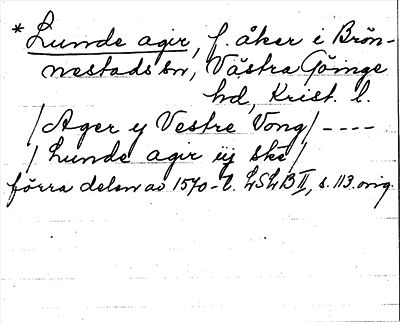 * Lunde agir, f. åker i Brön-
nestads sn, Västra Göinge
hd, Krist. l.
/Ager y Vestre Vong/ ----
/Lunde agir iij ske/
förra delen av 1570-t. LSLB II, s. 113. orig.